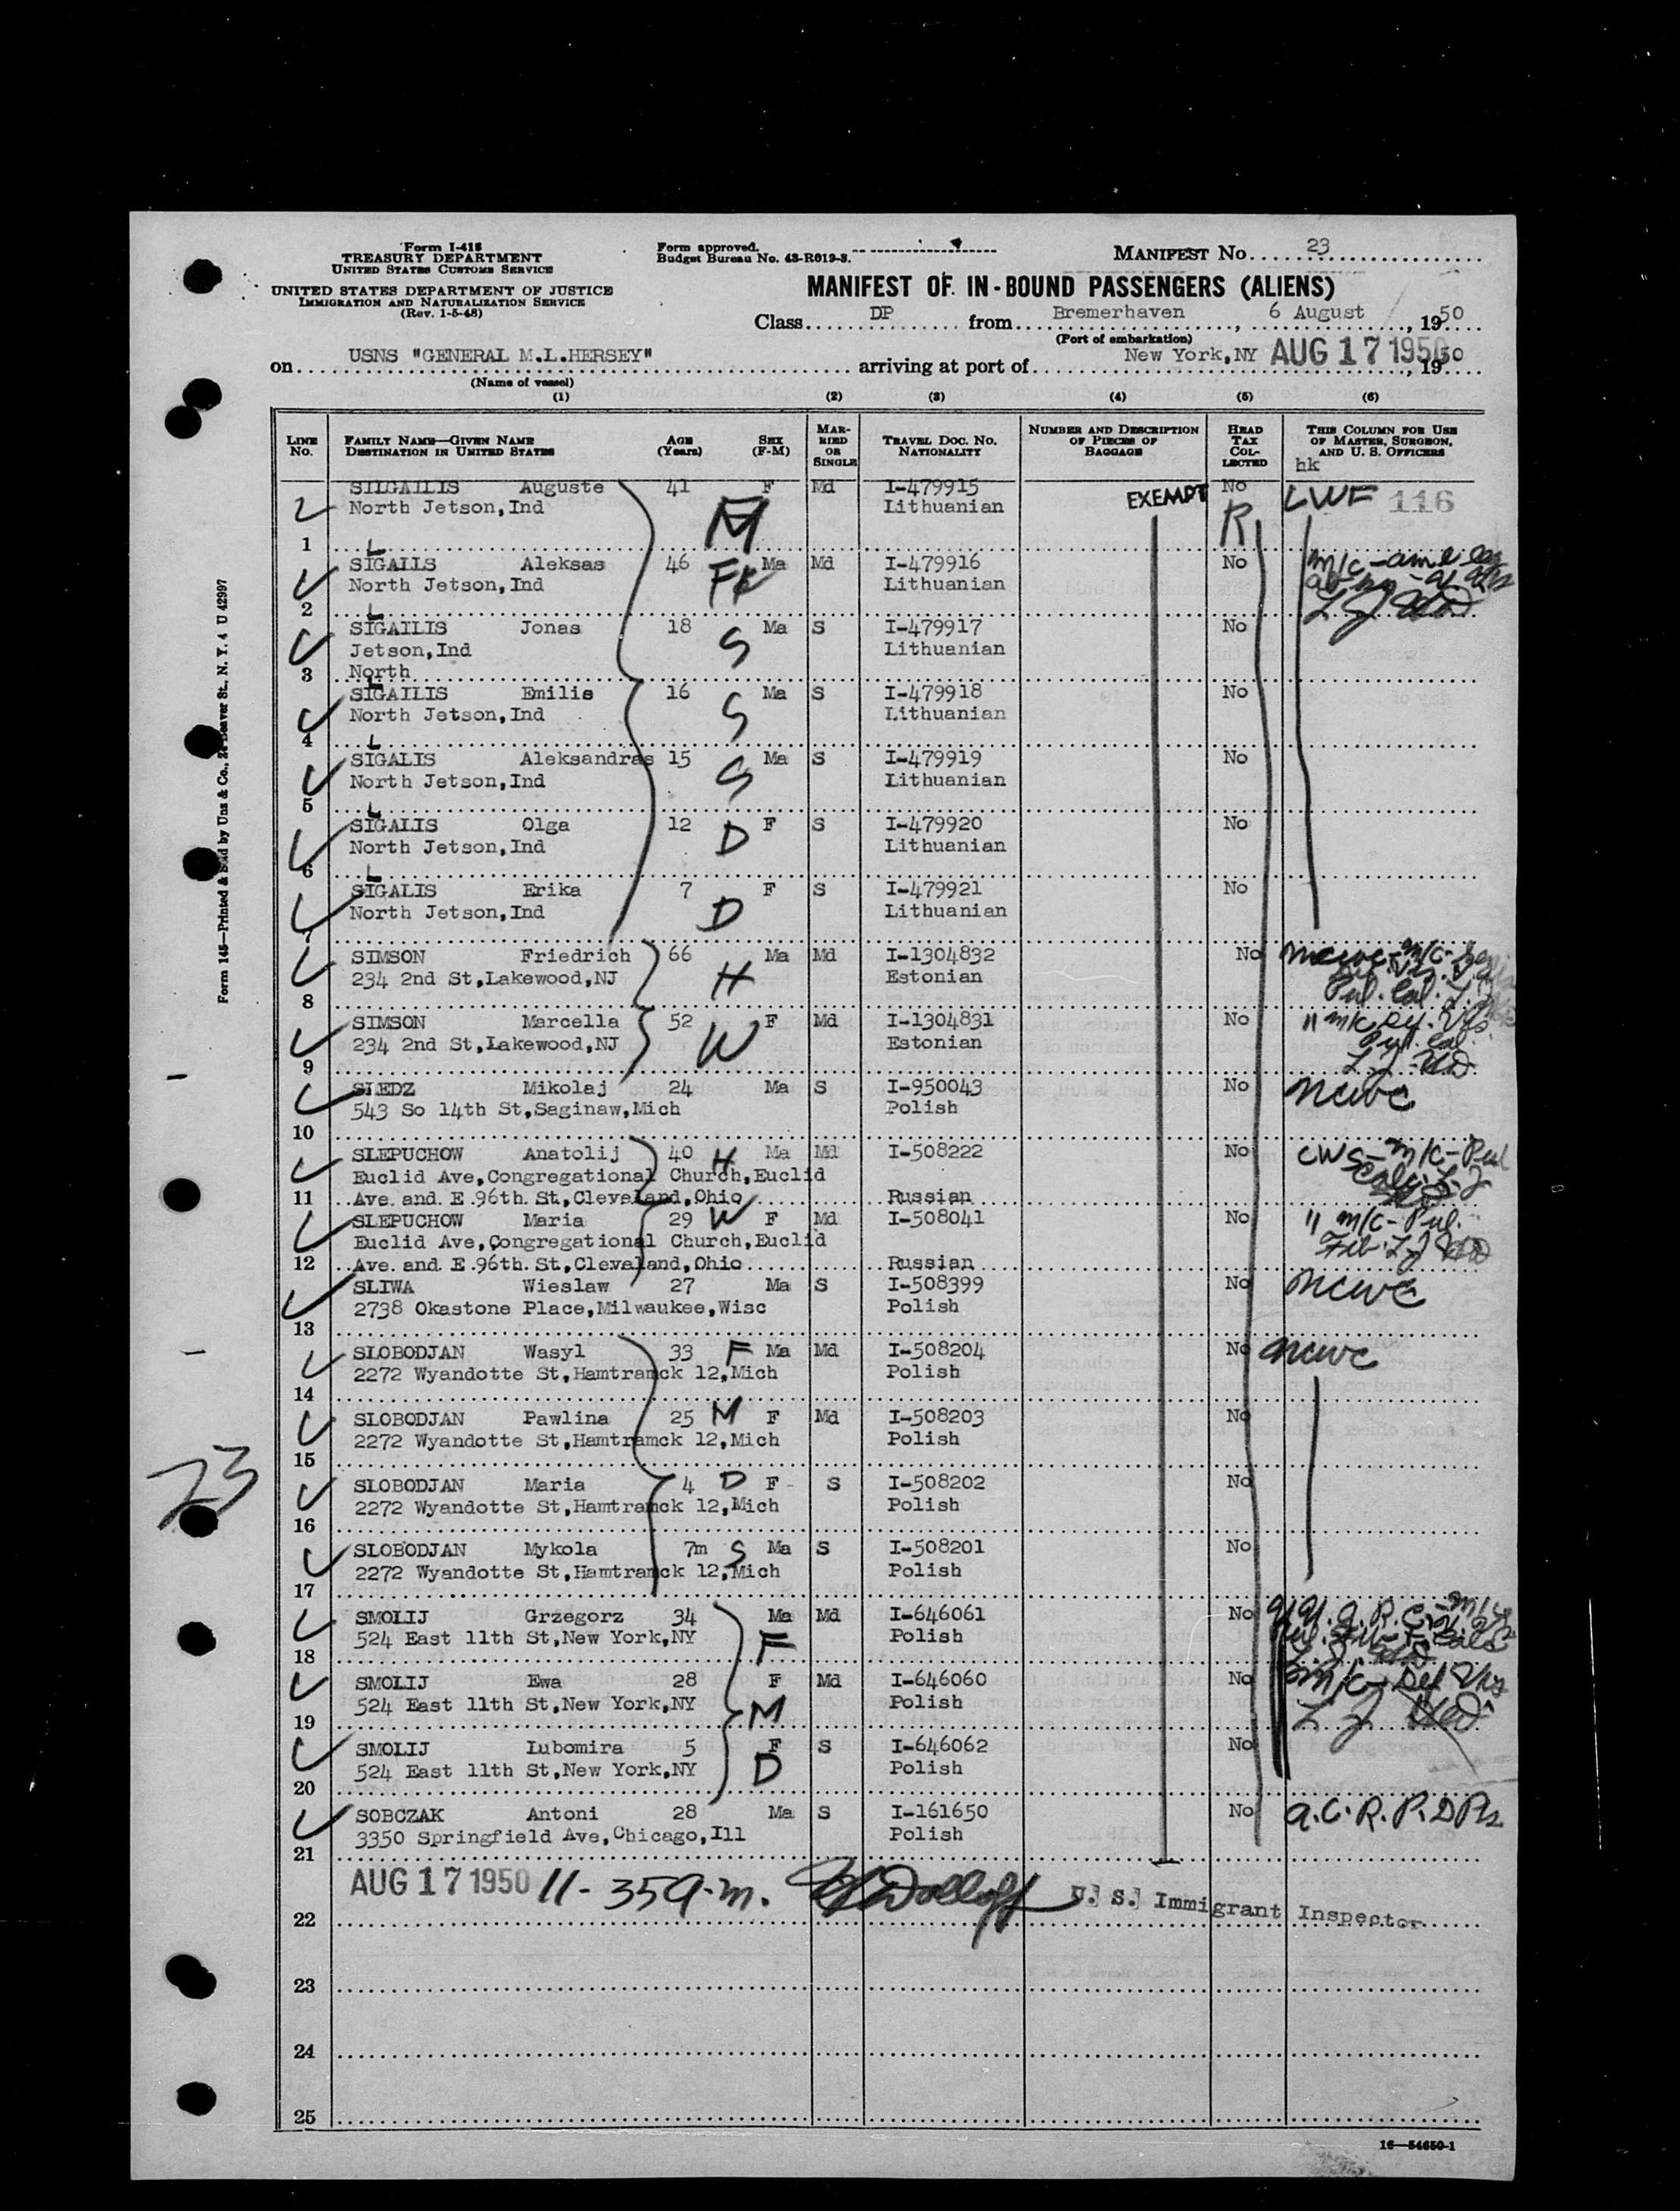 Form I-418
TREASURY DEPARTMENT
UNITED STATES CUSTOMS SERVICE
UNITED STATES DEPARTMENT OF JUSTICE
IMMIGRATION AND NATURALIZATION SERVICE
(Rev. 1-5-48)
Form approved.
Budget Bureau No. 43-R019-3.
MANIFEST No. 23
MANIFEST OF IN-BOUND PASSENGERS (ALIENS)
Class DP from Bremerhaven, 6 August, 1950
(Port of embarkation)
on USNS "GENERAL M.L.HERSEY" arriving at port of New York, NY AUG 17 1950, 1950
(Name of vessel)
(1) (2) (3) (4) (5) (6)
LINE No. FAMILY NAME—GIVEN NAME DESTINATION IN UNITED STATES AGE (Years) SEX (F-M) MARRIED OR SINGLE TRAVEL DOC. No. NATIONALITY NUMBER AND DESCRIPTION OF PIECES OF BAGGAGE HEAD TAX COLLECTED THIS COLUMN FOR USE OF MASTER, SURGEON, AND U. S. OFFICERS
hk
SILGAILIS Auguste 41 F Md I-479915 EXEMPT No LWF 116
North Jetson,Ind M Lithuanian R
1
L
SIGALIS Aleksas 46 Ma Md I-479916 No m/c
North Jetson,Ind F Lithuanian
2
L
SIGAILIS Jonas 18 Ma S I-479917 No
Jetson,Ind S Lithuanian
3 North
L
SIGAILIS Emilis 16 Ma S I-479918 No
North Jetson,Ind S Lithuanian
4
L
SIGALIS Aleksandras 15 Ma S I-479919 No
North Jetson,Ind S Lithuanian
5
L
SIGALIS Olga 12 F S I-479920 No
North Jetson,Ind D Lithuanian
6
L
SIGALIS Erika 7 F S I-479921 No
North Jetson,Ind D Lithuanian
7
SIMSON Friedrich 66 Ma Md I-1304832 No ncwc-m/c
234 2nd St,Lakewood,NJ H Estonian
8
SIMSON Marcella 52 F Md I-1304831 No " m/c
234 2nd St,Lakewood,NJ W Estonian
9
SLEDZ Mikolaj 24 Ma S I-950043 No ncwc
543 So 14th St,Saginaw,Mich Polish
10
SLEPUCHOW Anatolij 40 H Ma Md I-508222 No CWS-m/c-Pul
Euclid Ave,Congregational Church,Euclid
11 Ave. and E.96th St,Cleveland,Ohio Russian
SLEPUCHOW Maria 29 W F Md I-508041 No " m/c-Pul.
Euclid Ave,Congregational Church,Euclid
12 Ave. and E.96th St,Cleveland,Ohio Russian
SLIWA Wieslaw 27 Ma S I-508399 No ncwc
2738 Okastone Place,Milwaukee,Wisc Polish
13
SLOBODJAN Wasyl 33 F Ma Md I-508204 No ncwc
2272 Wyandotte St,Hamtramck 12,Mich Polish
14
SLOBODJAN Pawlina 25 M F Md I-508203 No
2272 Wyandotte St,Hamtramck 12,Mich Polish
15
23
SLOBODJAN Maria 4 D F S I-508202 No
2272 Wyandotte St,Hamtramck 12,Mich Polish
16
SLOBODJAN Mykola 7m S Ma S I-508201 No
2272 Wyandotte St,Hamtramck 12,Mich Polish
17
SMOLIJ Grzegorz 34 Ma Md I-646061 No
524 East 11th St,New York,NY F Polish
18
SMOLIJ Ewa 28 F Md I-646060 No m/c
524 East 11th St,New York,NY M Polish
19
SMOLIJ Lubomira 5 F S I-646062 No
524 East 11th St,New York,NY D Polish
20
SOBCZAK Antoni 28 Ma S I-161650 No
3350 Springfield Ave,Chicago,Ill Polish
21
AUG 17 1950 11-359-m. U. S. Immigrant Inspector
22
23
24
25
16—54650-1
Form 145—Printed & Sold by Unz & Co., 24 Beaver St., N. Y. 4 U 4297